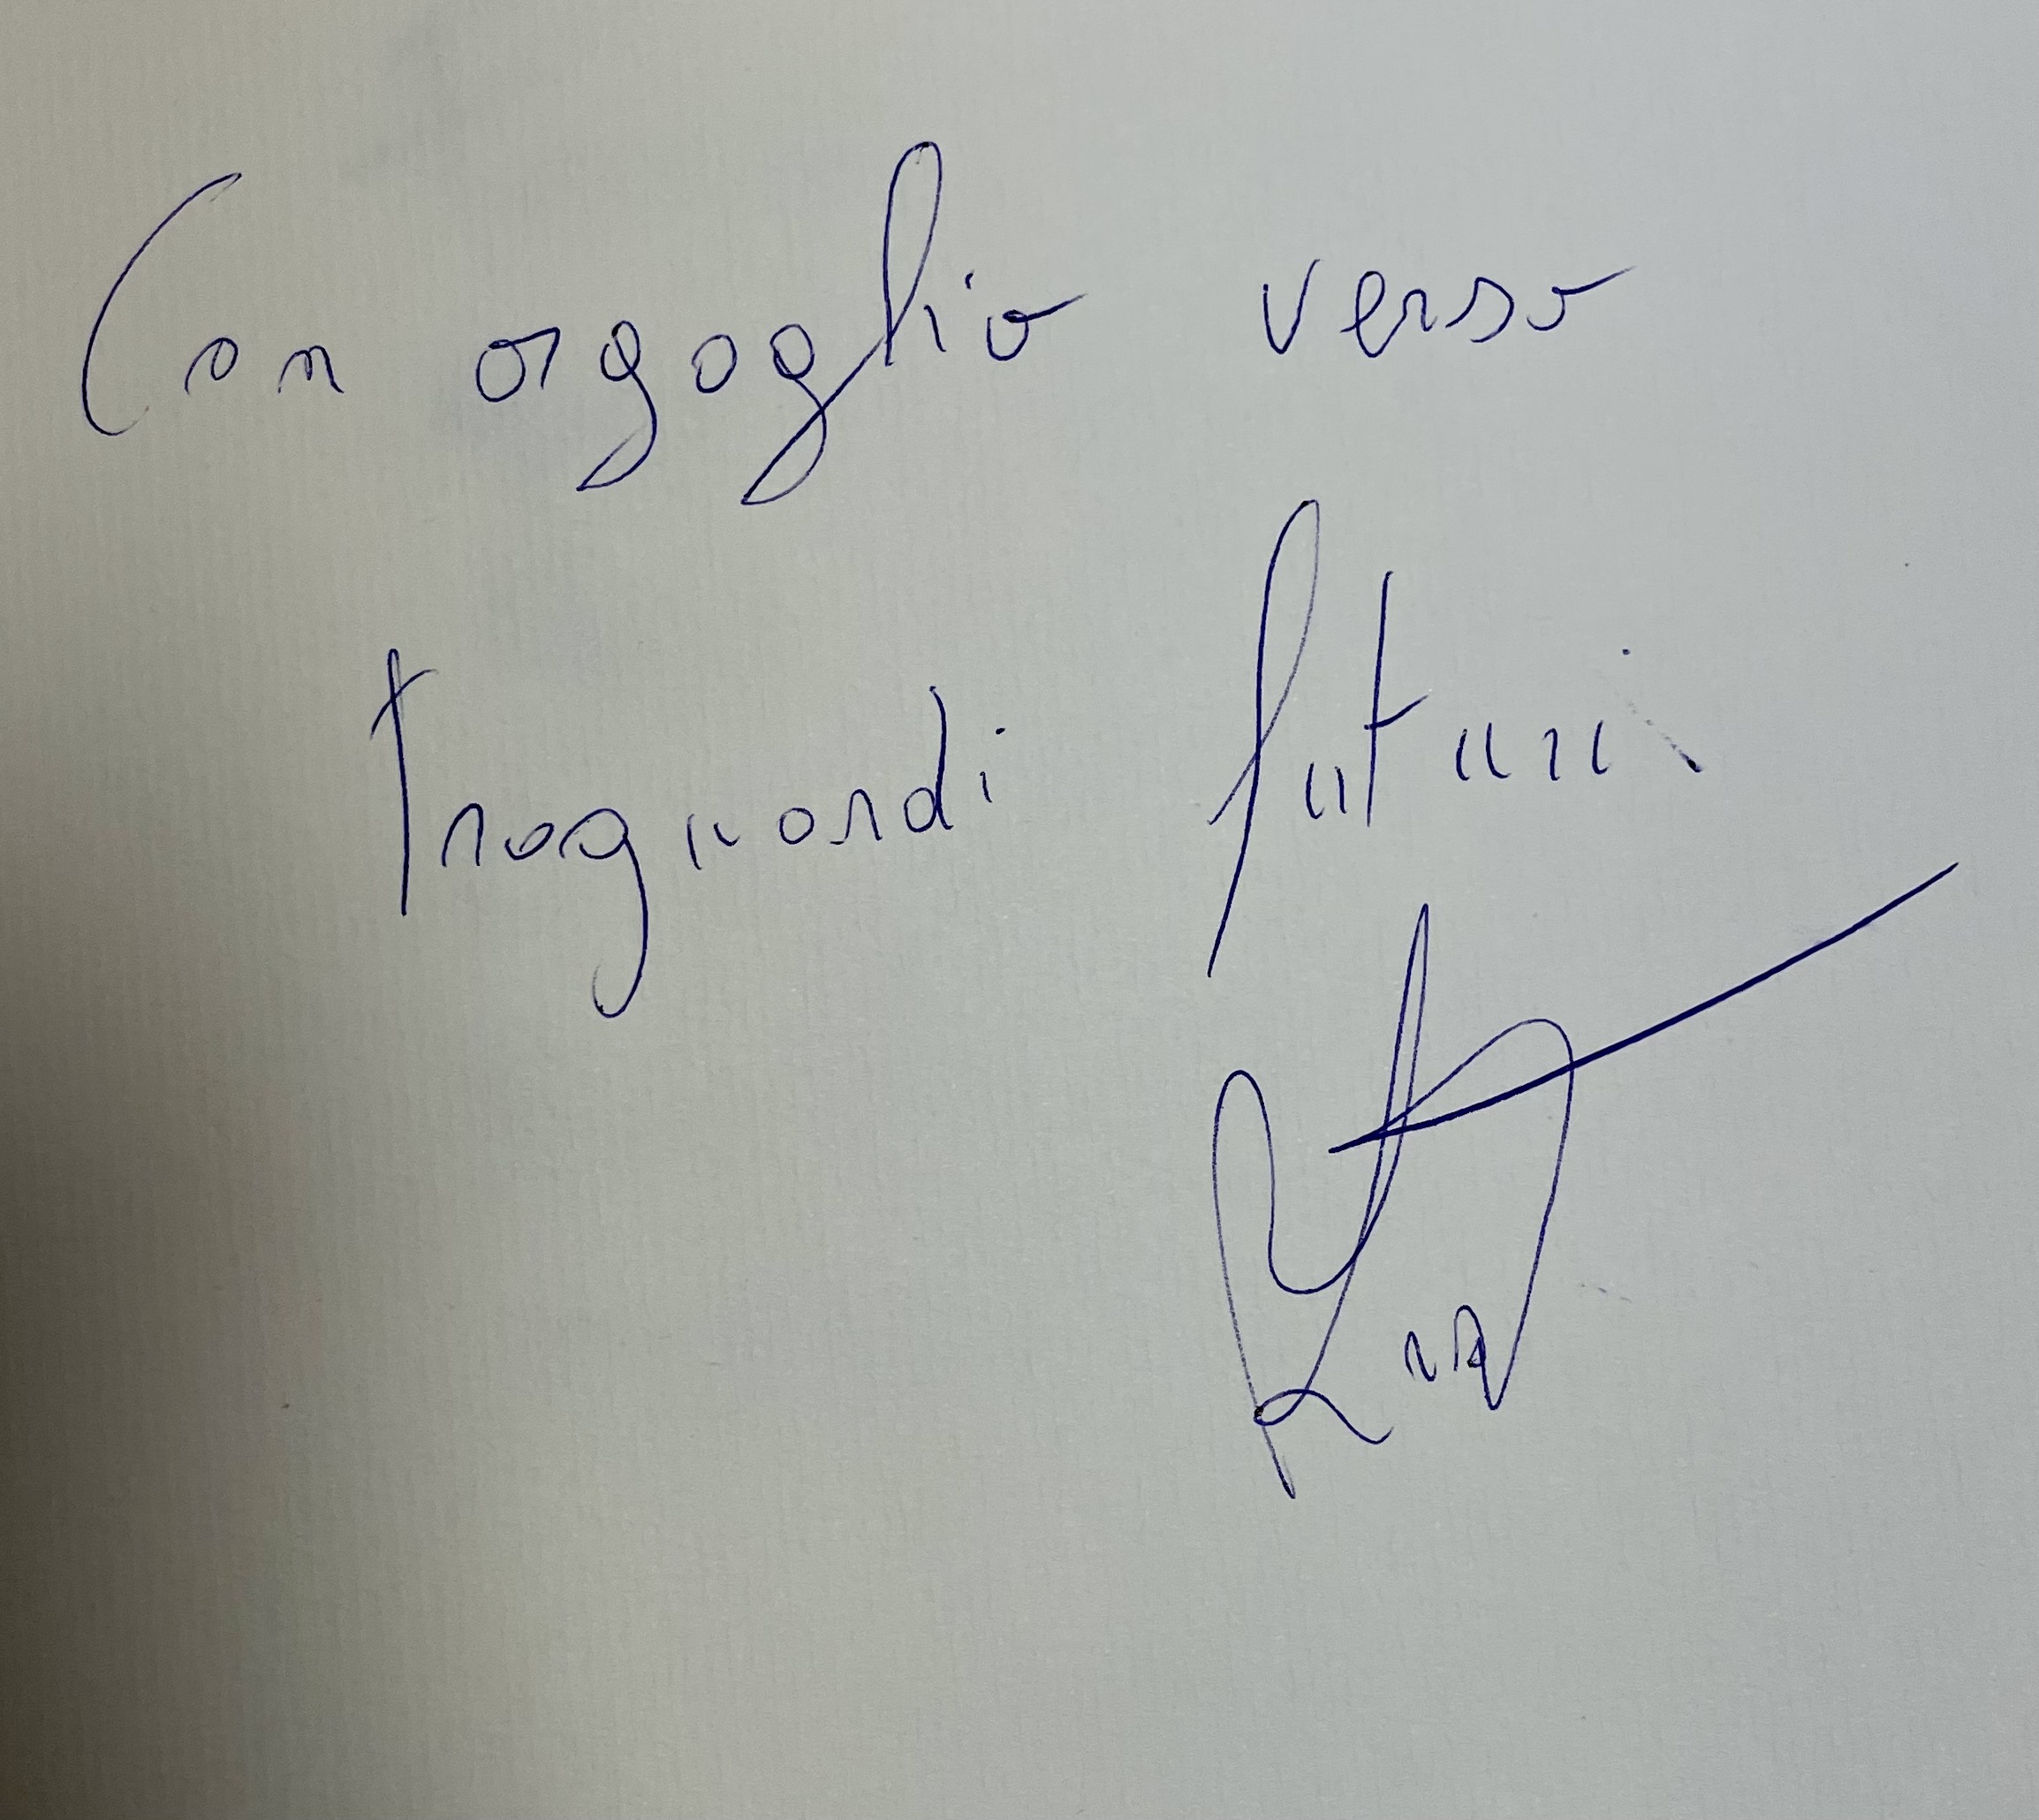 Con orgoglio verso
traguardi futuri.